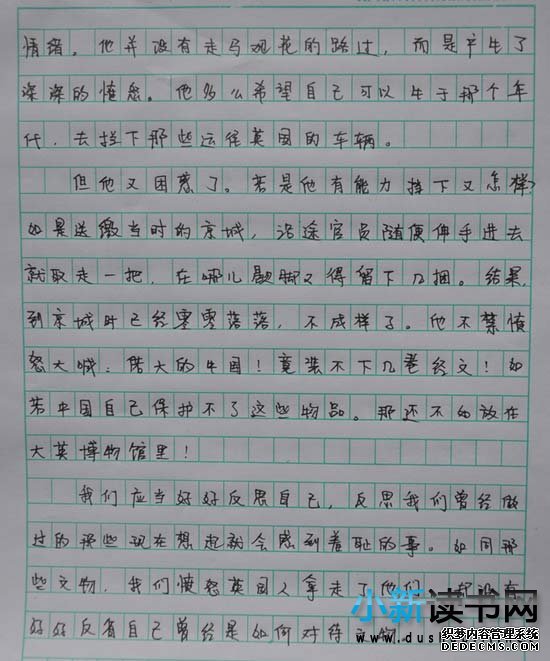 情绪。他并没有走马观花的路过，而是产生了
深深的愤怒。他多么希望自己可以生于那个年
代，去拦下那些运往英国的车辆。
但他又困惑了。若是他有能力拦下又怎样？
如是送缴当时的京城，沿途官员随便伸手进去
就取走一把，在哪儿歇脚又得留下几捆。结果，
到京城时已经零零落落，不成样子。他不禁愤
怒大喊：偌大的中国！竟装不下几卷经文！如
若中国自己保护不了这些物品。那还不如放在
大英博物馆里！
我们应当好好反思自己，反思我们曾经做
过的那些现在想起就会感到羞耻的事。如同那
些文物，我们愤怒英国人拿走了他们，却没有
好好反省自己曾经是如何对待
小新读书网
www.dus
织梦内容管理系统
DEDECMS.COM